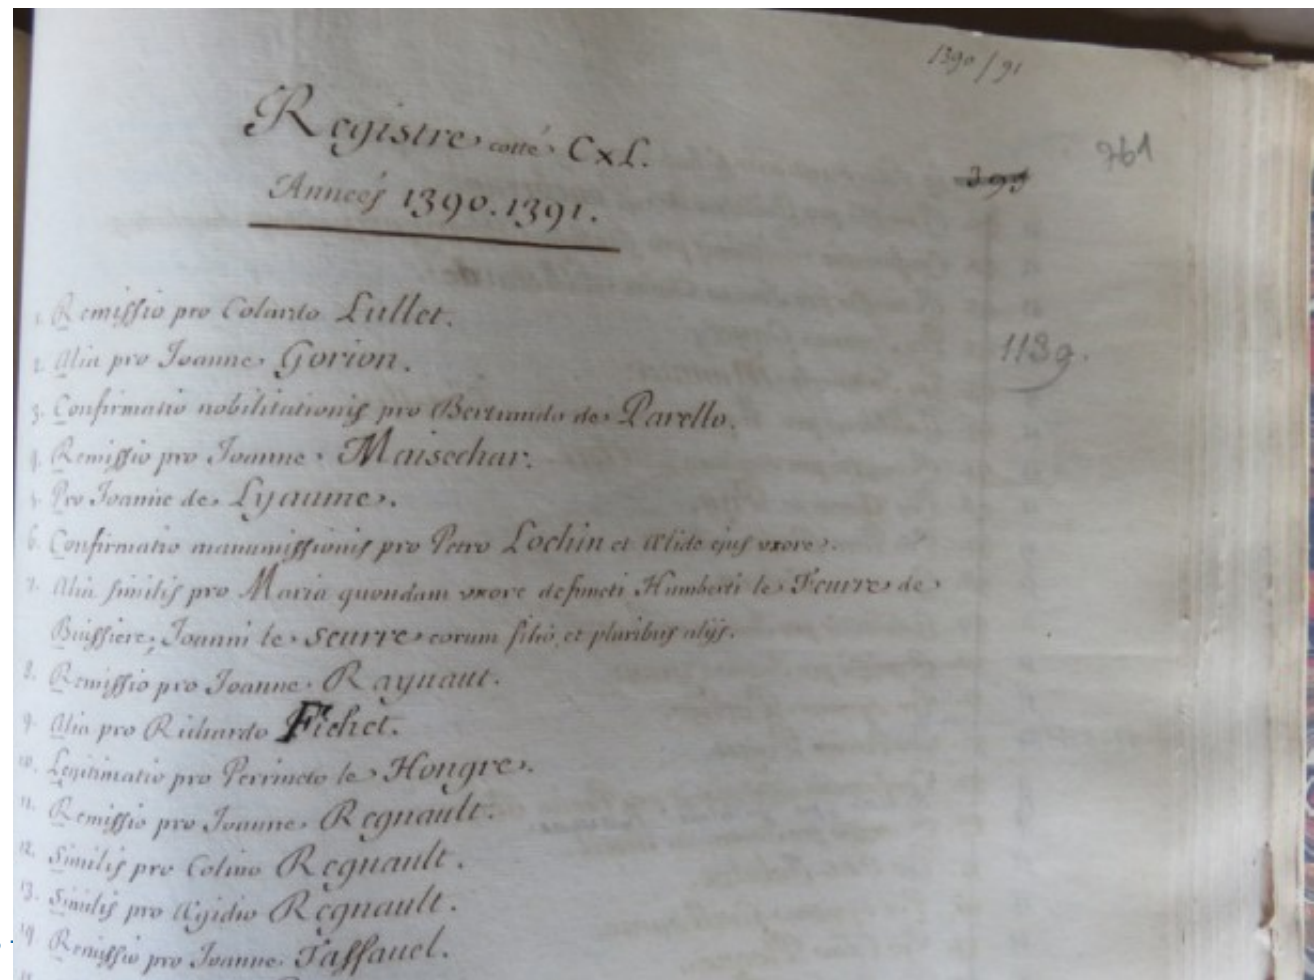 1390/91
Registre cotté CxL.
761
399
Années 1390.1391.
1. Remissio pro Colardo Lullet.
1139.
2. Alia pro Joanne Gorion.
3. Confirmatio nobilitationis pro Bertrando de Parello.
4. Remissio pro Joanne Maisechar.
5. Pro Joanne de Lyaume.
6. Confirmatio manumissionis pro Petro Lochin et Alide ejus uxore.
7. Alia similis pro Maria quondam uxore defuncti Humberti le Feurre de
Buissiere, Joanni le seurre eorum filio, et pluribus alijs.
8. Remissio pro Joanne Raynaut.
9. Alia pro Richardo Fichet.
10. Legitimatio pro Perrineto le Hongre.
11. Remissio pro Joanne Regnault.
12. Similis pro Colino Regnault.
13. Similis pro Ægidio Regnault.
14. Remissio pro Joanne Taffauel.